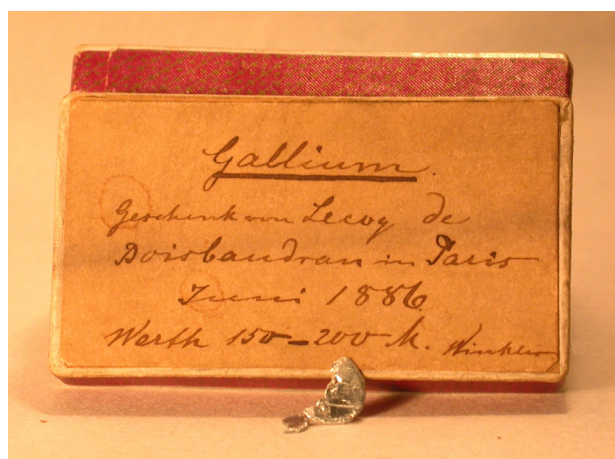 Gallium.
Geschenk von Lecoq de
Boisbaudran in Paris
Juni 1886
Werth 150–200 M. Winkler